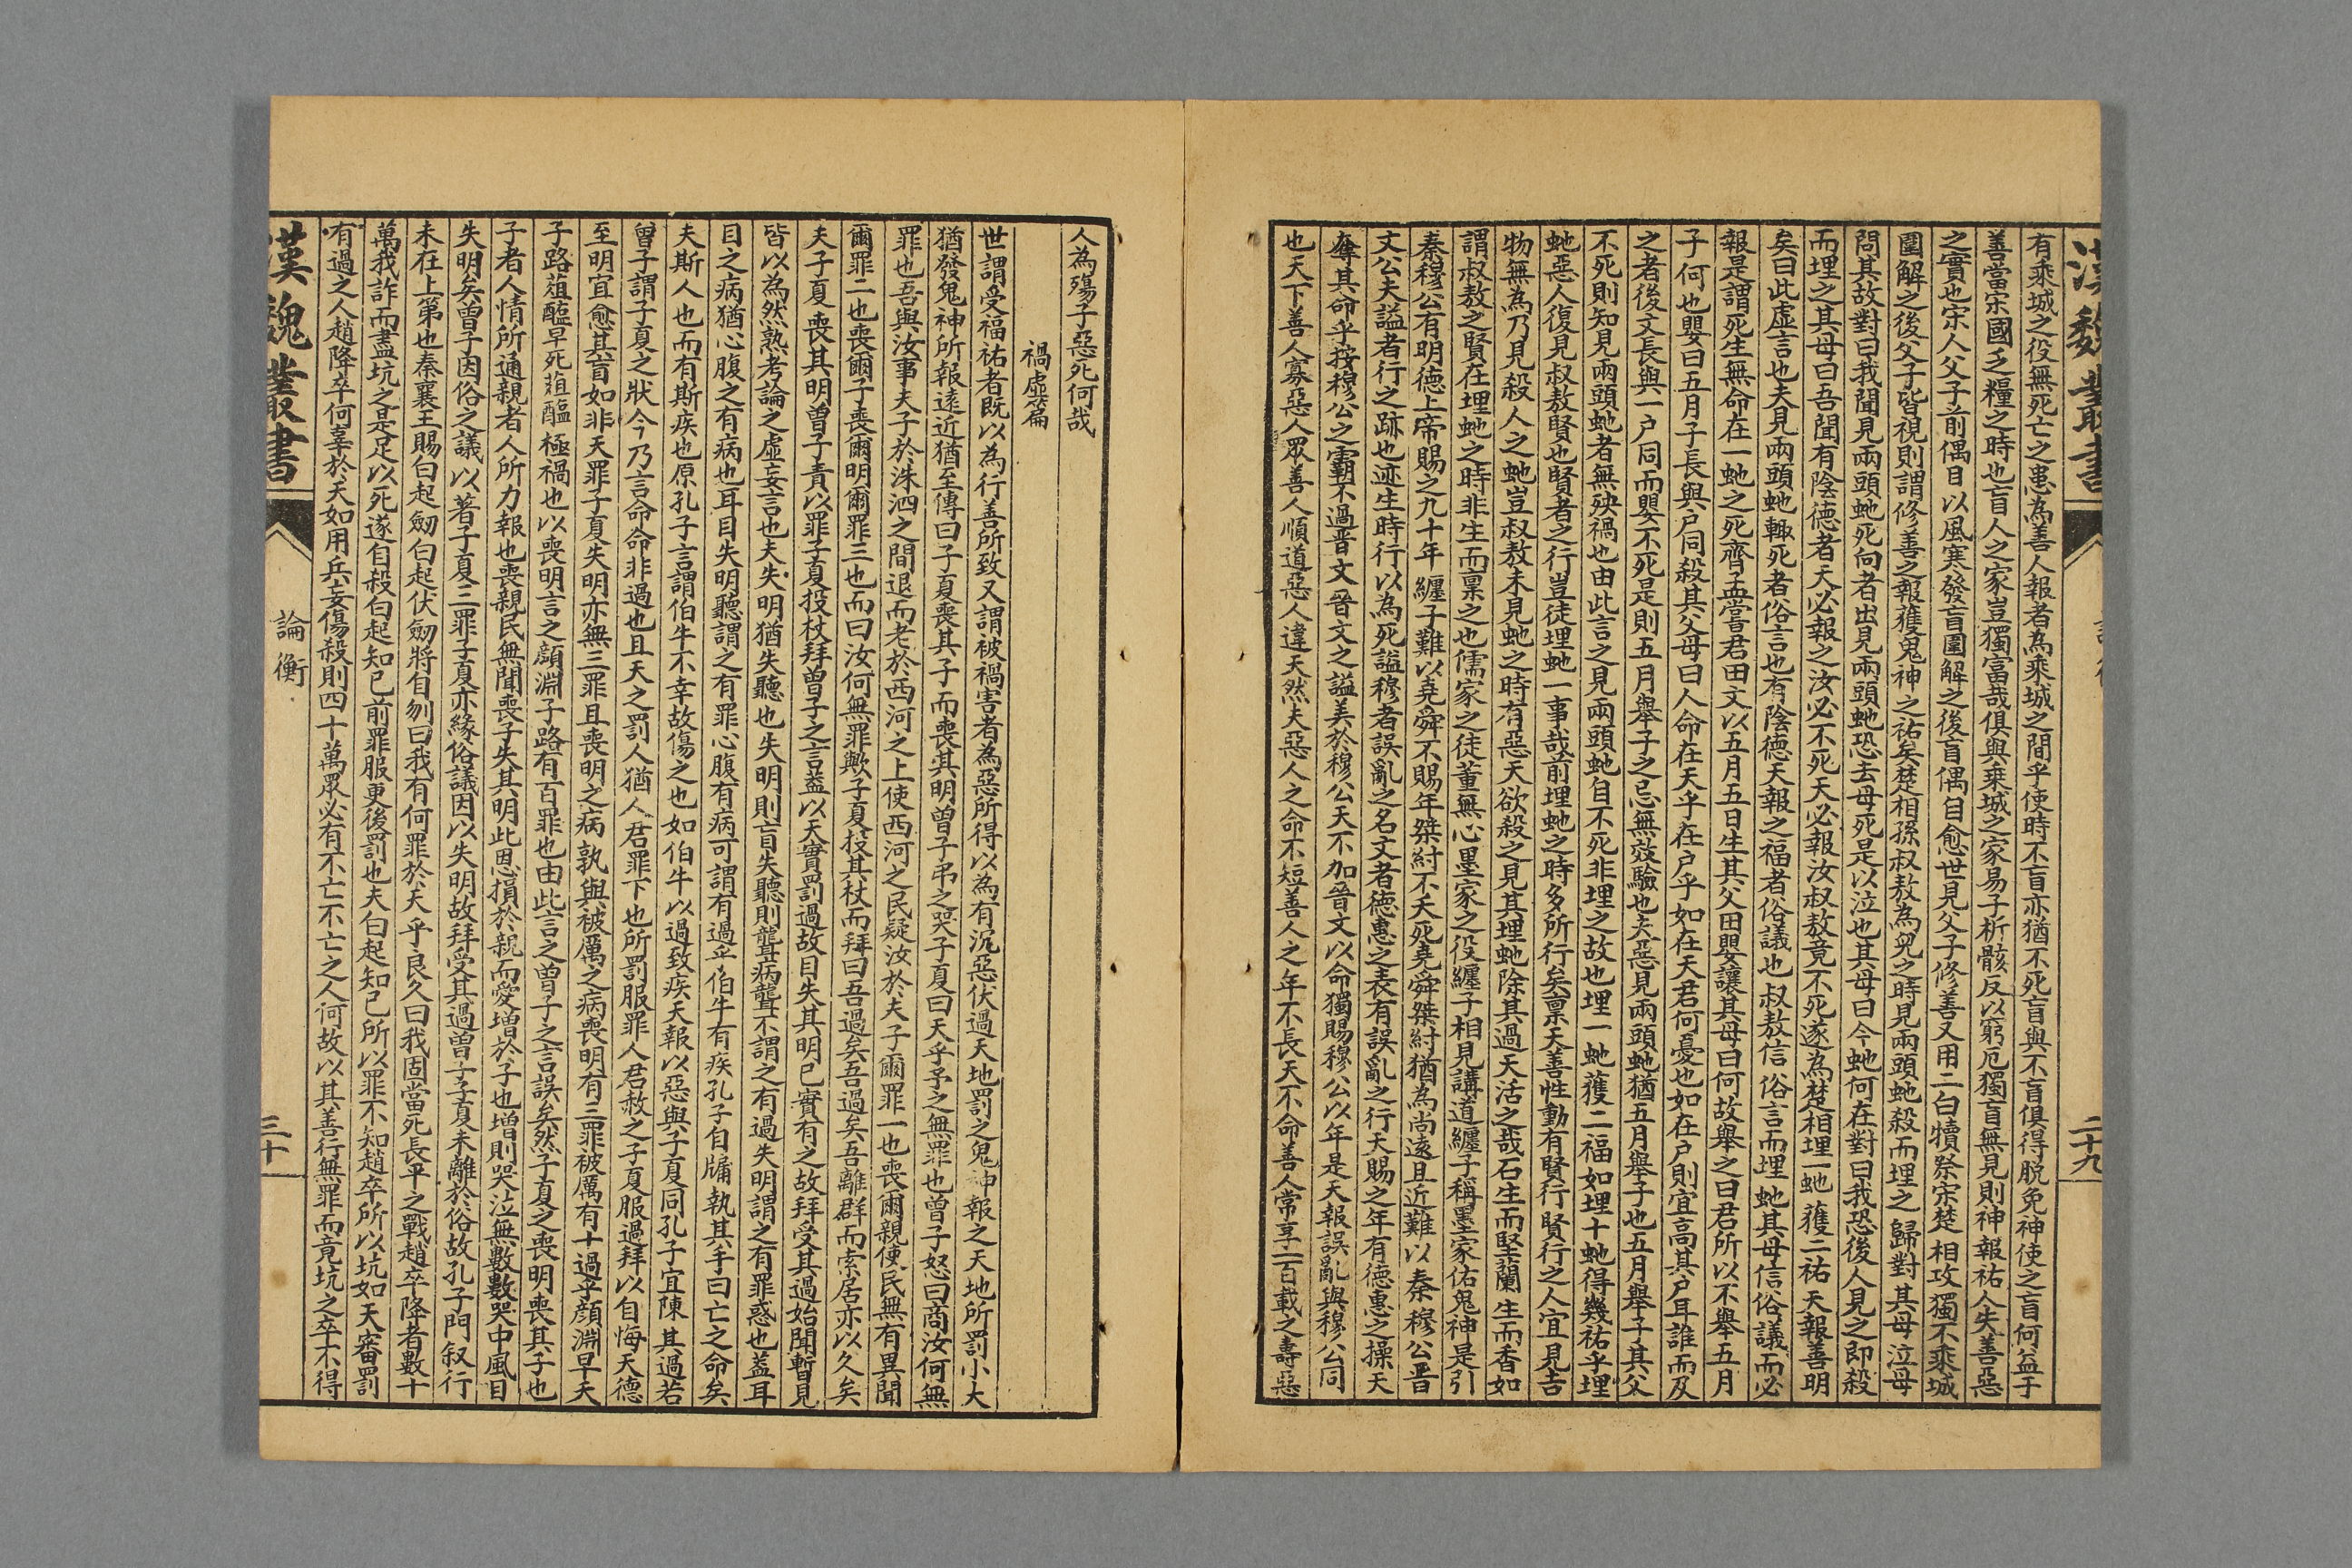 漢魏叢書
二十九
有乘城之役無死亡之患為善人報者為乘城之間乎使時不盲亦猶不死盲與不盲俱得脫免神使之盲何益于
善當宋國乏糧之時也盲人之家豈獨富哉俱與乘城之家易子析骸反以窮厄獨盲無見則神報祐人失善惡
之實也宋人父子前偶目以風寒發盲圍解之後盲偶自愈世見父子修善又用二白犢祭宋楚相攻獨不乘城
圍解之後父子皆視則謂修善之報獲鬼神之祐矣楚相孫叔敖為兒之時見兩頭虵殺而埋之歸對其母泣母
問其故對曰我聞見兩頭虵死向者出見兩頭虵恐去母死是以泣也其母曰今虵何在對曰我恐後人見之即殺
而埋之其母曰吾聞有陰德者天必報之汝必不死天必報汝叔敖竟不死遂為楚相埋一虵獲二祐天報善明
矣曰此虛言也夫見兩頭虵輙死者俗言也有陰德天報之福者俗議也叔敖信俗言而埋虵其母信俗議而必
報是謂死生無命在一虵之死齊孟嘗君田文以五月五日生其父田嬰讓其母曰何故舉之曰君所以不舉五月
子何也嬰曰五月子長與戶同殺其父母曰人命在天乎在戶乎如在天君何憂也如在戶則宜高其戶耳誰而及
之者後文長與一戶同而嬰不死是則五月舉子之忌無效驗也夫惡見兩頭虵猶五月舉子也五月舉子其父
不死則知見兩頭虵者無殃禍也由此言之見兩頭虵自不死非埋之故也埋一虵獲二福如埋十虵得幾祐乎埋
虵惡人復見叔敖賢也賢者之行豈徒埋虵一事哉前埋虵之時多所行矣禀天善性動有賢行賢行之人宜見吉
物無為乃見殺人之虵豈叔敖未見虵之時有惡天欲殺之見其埋虵除其過天活之哉石生而堅蘭生而香如
謂叔敖之賢在埋虵之時非生而禀之也儒家之徒董無心墨家之役纏子相見講道纏子稱墨家佑鬼神是引
秦穆公有明德上帝賜之九十年纏子難以堯舜不賜年桀紂不夭死堯舜桀紂猶為尚遠且近難以秦穆公晋
文公夫謚者行之跡也迹生時行以為死謚穆者誤亂之名文者德惠之表有誤亂之行天賜之年有德惠之操天
奪其命乎按穆公之霸不過晋文晋文之謚美於穆公天不加晋文以命獨賜穆公以年是天報誤亂與穆公同
也天下善人寡惡人眾善人順道惡人違天然夫惡人之命不短善人之年不長天不命善人常享一百載之壽惡
人為殤子惡死何哉
禍虛篇
世謂受福祐者既以為行善所致又謂被禍害者為惡所得以為有沉惡伏過天地罰之鬼神報之天地所罰小大
猶發鬼神所報遠近猶至傳曰子夏喪其子而喪其明曾子弔之哭子夏曰天乎予之無罪也曾子怒曰商汝何無
罪也吾與汝事夫子於洙泗之間退而老於西河之上使西河之民疑汝於夫子爾罪一也喪爾親使民無有異聞
爾罪二也喪爾子喪爾明爾罪三也而曰汝何無罪歟子夏投其杖而拜曰吾過矣吾過矣吾離群而索居亦以久矣
夫子夏喪其明曾子責以罪子夏投杖拜曾子之言蓋以天實罰過故目失其明已實有之故拜受其過始聞暫見
皆以為然熟考論之虛妄言也夫失明猶失聽也失明則盲失聽則聾病聾不謂之有過失明謂之有罪惑也蓋耳
目之病猶心腹之有病也耳目失明聽謂之有罪心腹有病可謂有過乎伯牛有疾孔子自牖執其手曰亡之命矣
夫斯人也而有斯疾也原孔子言謂伯牛不幸故傷之也如伯牛以過致疾天報以惡與子夏同孔子宜陳其過若
曾子謂子夏之狀今乃言命命非過也且天之罰人猶人君罪下也所罰服罪人君赦之子夏服過拜以自悔天德
至明宜愈其盲如非天罪子夏失明亦無三罪且喪明之病孰與被厲之病喪明有三罪被厲有十過乎顏淵早夭
子路葅醢早死葅醢極禍也以喪明言之顏淵子路有百罪也由此言之曾子之言誤矣然子夏之喪明喪其子也
子者人情所通親者人所力報也喪親民無聞喪子失其明此恩損於親而愛增於子也增則哭泣無數數哭中風目
失明矣曾子因俗之議以著子夏三罪子夏亦緣俗議因以失明故拜受其過曾子子夏未離於俗故孔子門叙行
未在上第也秦襄王賜白起劒白起伏劒將自刎曰我有何罪於天乎良久曰我固當死長平之戰趙卒降者數十
萬我詐而盡坑之是足以死遂自殺白起知己前罪服更後罰也夫白起知己所以罪不知趙卒所以坑如天審罰
有過之人趙降卒何辜於天如用兵妄傷殺則四十萬眾必有不亡不亡之人何故以其善行無罪而竟坑之卒不得
漢魏叢書
論衡
三十